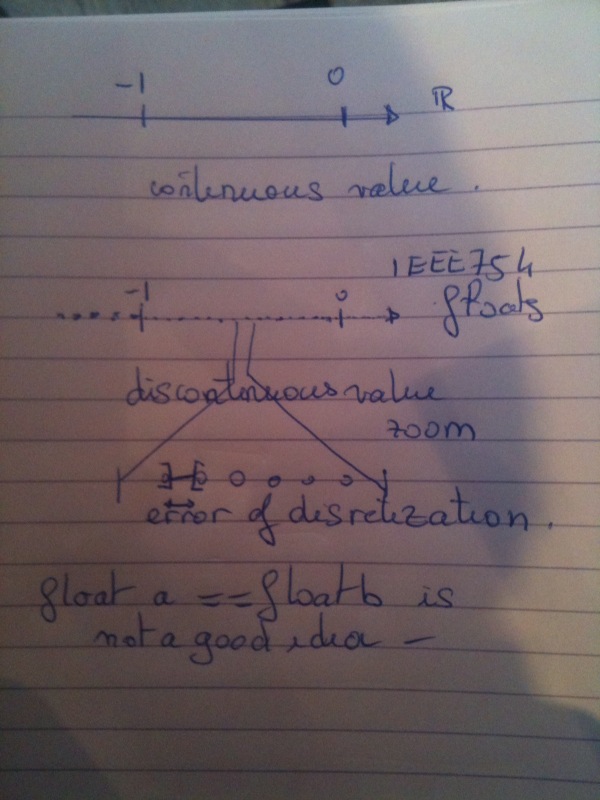 -1 0 ℝ
continuous value.
IEEE754
-1 0 floats
discontinuous value
zoom
error of disretization.
float a == float b is
not a good idea -